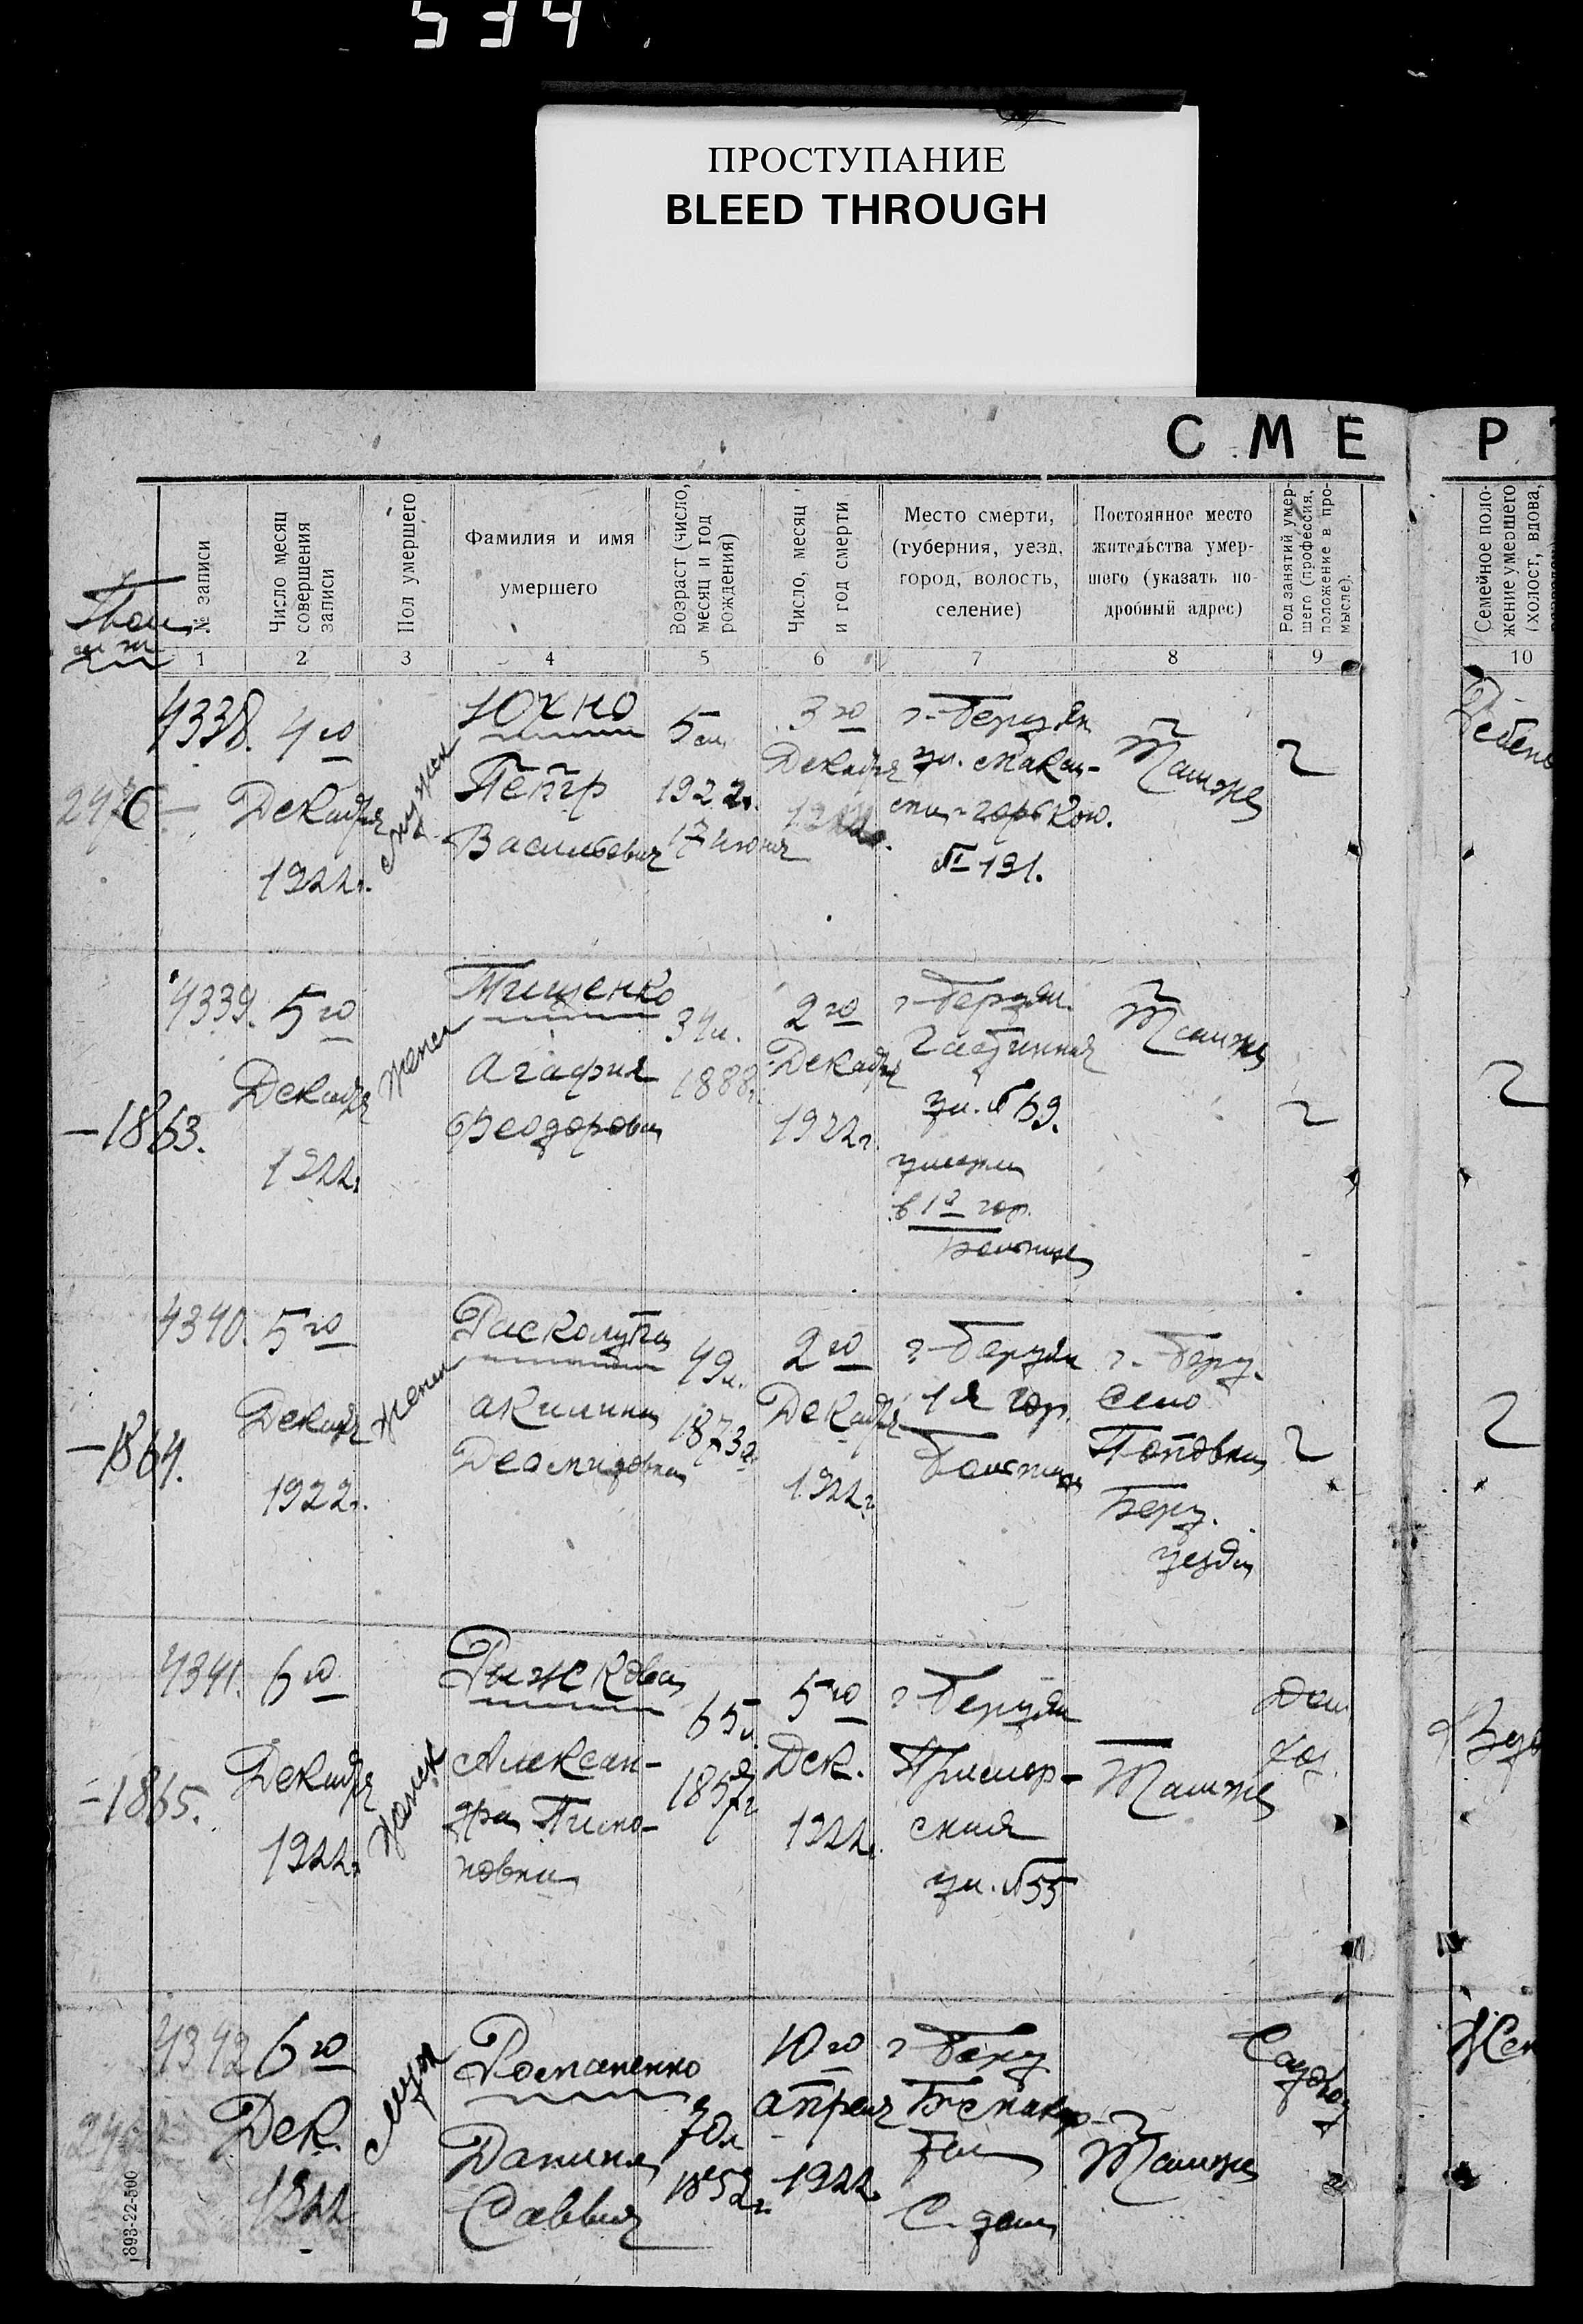 534
ПРОСТУПАНИЕ
BLEED THROUGH
СМЕ Р
№ записи
Число месяц
совершения
записи
Пол умершего
Фамилия и имя
умершего
Возраст (число,
месяц и год
рождения)
Число, месяц
и год смерти
Место смерти,
(губерния, уезд,
город, волость,
селение)
Постоянное место
жительства умер-
шего (указать по-
дробный адрес)
Род занятий умер-
шего (профессия,
положение в про-
мысле).
Семейное поло-
жение умершего
(холост, вдова,
1 2 3 4 5 6 7 8 9 10
4338.
4го
Декабря
1922г.
мужск
Юхно
Петр
Васильевич
5 м.
1922г.
17 июня
3го
Декабря
г. Бердян
ул. Макси-
горького.
№ 191.
Там же
4339.
– 1863.
5го
Декабря
1922г
женск
Тищенко
Агафия
Феодоровна
34 л.
1888г.
2го
Декабря
1922г
г. Бердян.
ул. № 69.
умерла
в 1й гор.
Больнице
Там же
4340.
– 1864.
5го
Декабря
1922г.
женск
Расколупа
Акилина
49 л.
1873г.
2го
Декабря
1922г
г. Бердян
1я гор.
Больница
г. Берд.
Село
Поповка
Берд.
уезда
4341.
– 1865.
6го
Декабря
1922г.
женск
Рижкова
Алексан-
дра Тимо-
65 л.
1857г
5го
Дек.
1922г.
г. Бердян
Примор-
ская
ул. № 55
Там же
Дом
хоз.
4342
6го
Дек.
1922
муж
Романенко
Данила
Саввич
70 л
1852г.
10го
апреля
1922г.
г. Берд
Там же
Жен
893-22-500